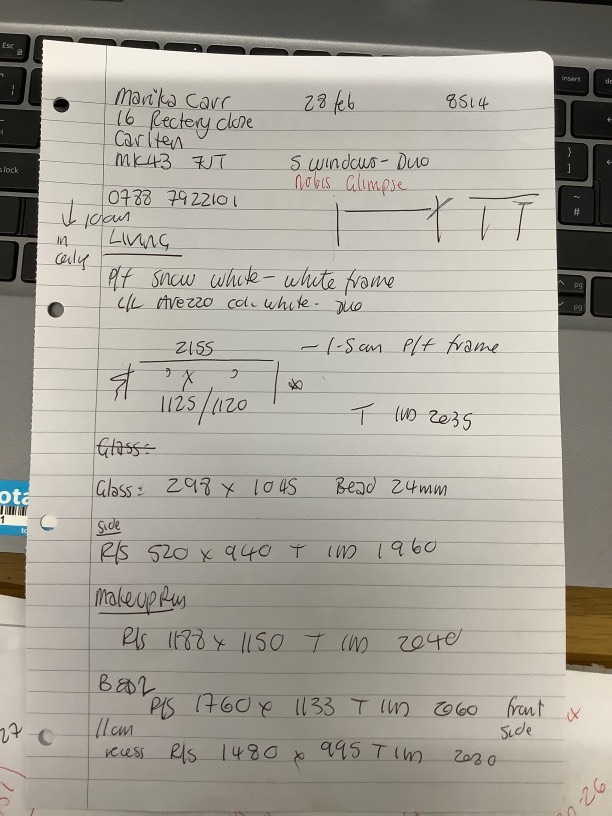 Marika Carr 28 feb 8514
16 Rectery close
Carlten
MK43 7JT 5 windows - Duo
Nobis Glimpse
0788 7922101
↓ 10cm
in
Living
P/f snow white - white frame
C/L Avezzo col. white - Duo
2155 - 1.5cm P/f frame
, x ,
1125/1120
T (W) 2035
Glass:
Glass: 298 x 1045 Bead 24mm
side
R/S 520 x 940 T (W) 1960
Makeup Rm
R/S 1188 x 1150 T (W) 2040
Bed 2
R/S 1760 x 1133 T (W) 2060 front
11cm side
recess R/S 1480 x 995 T (W) 2030